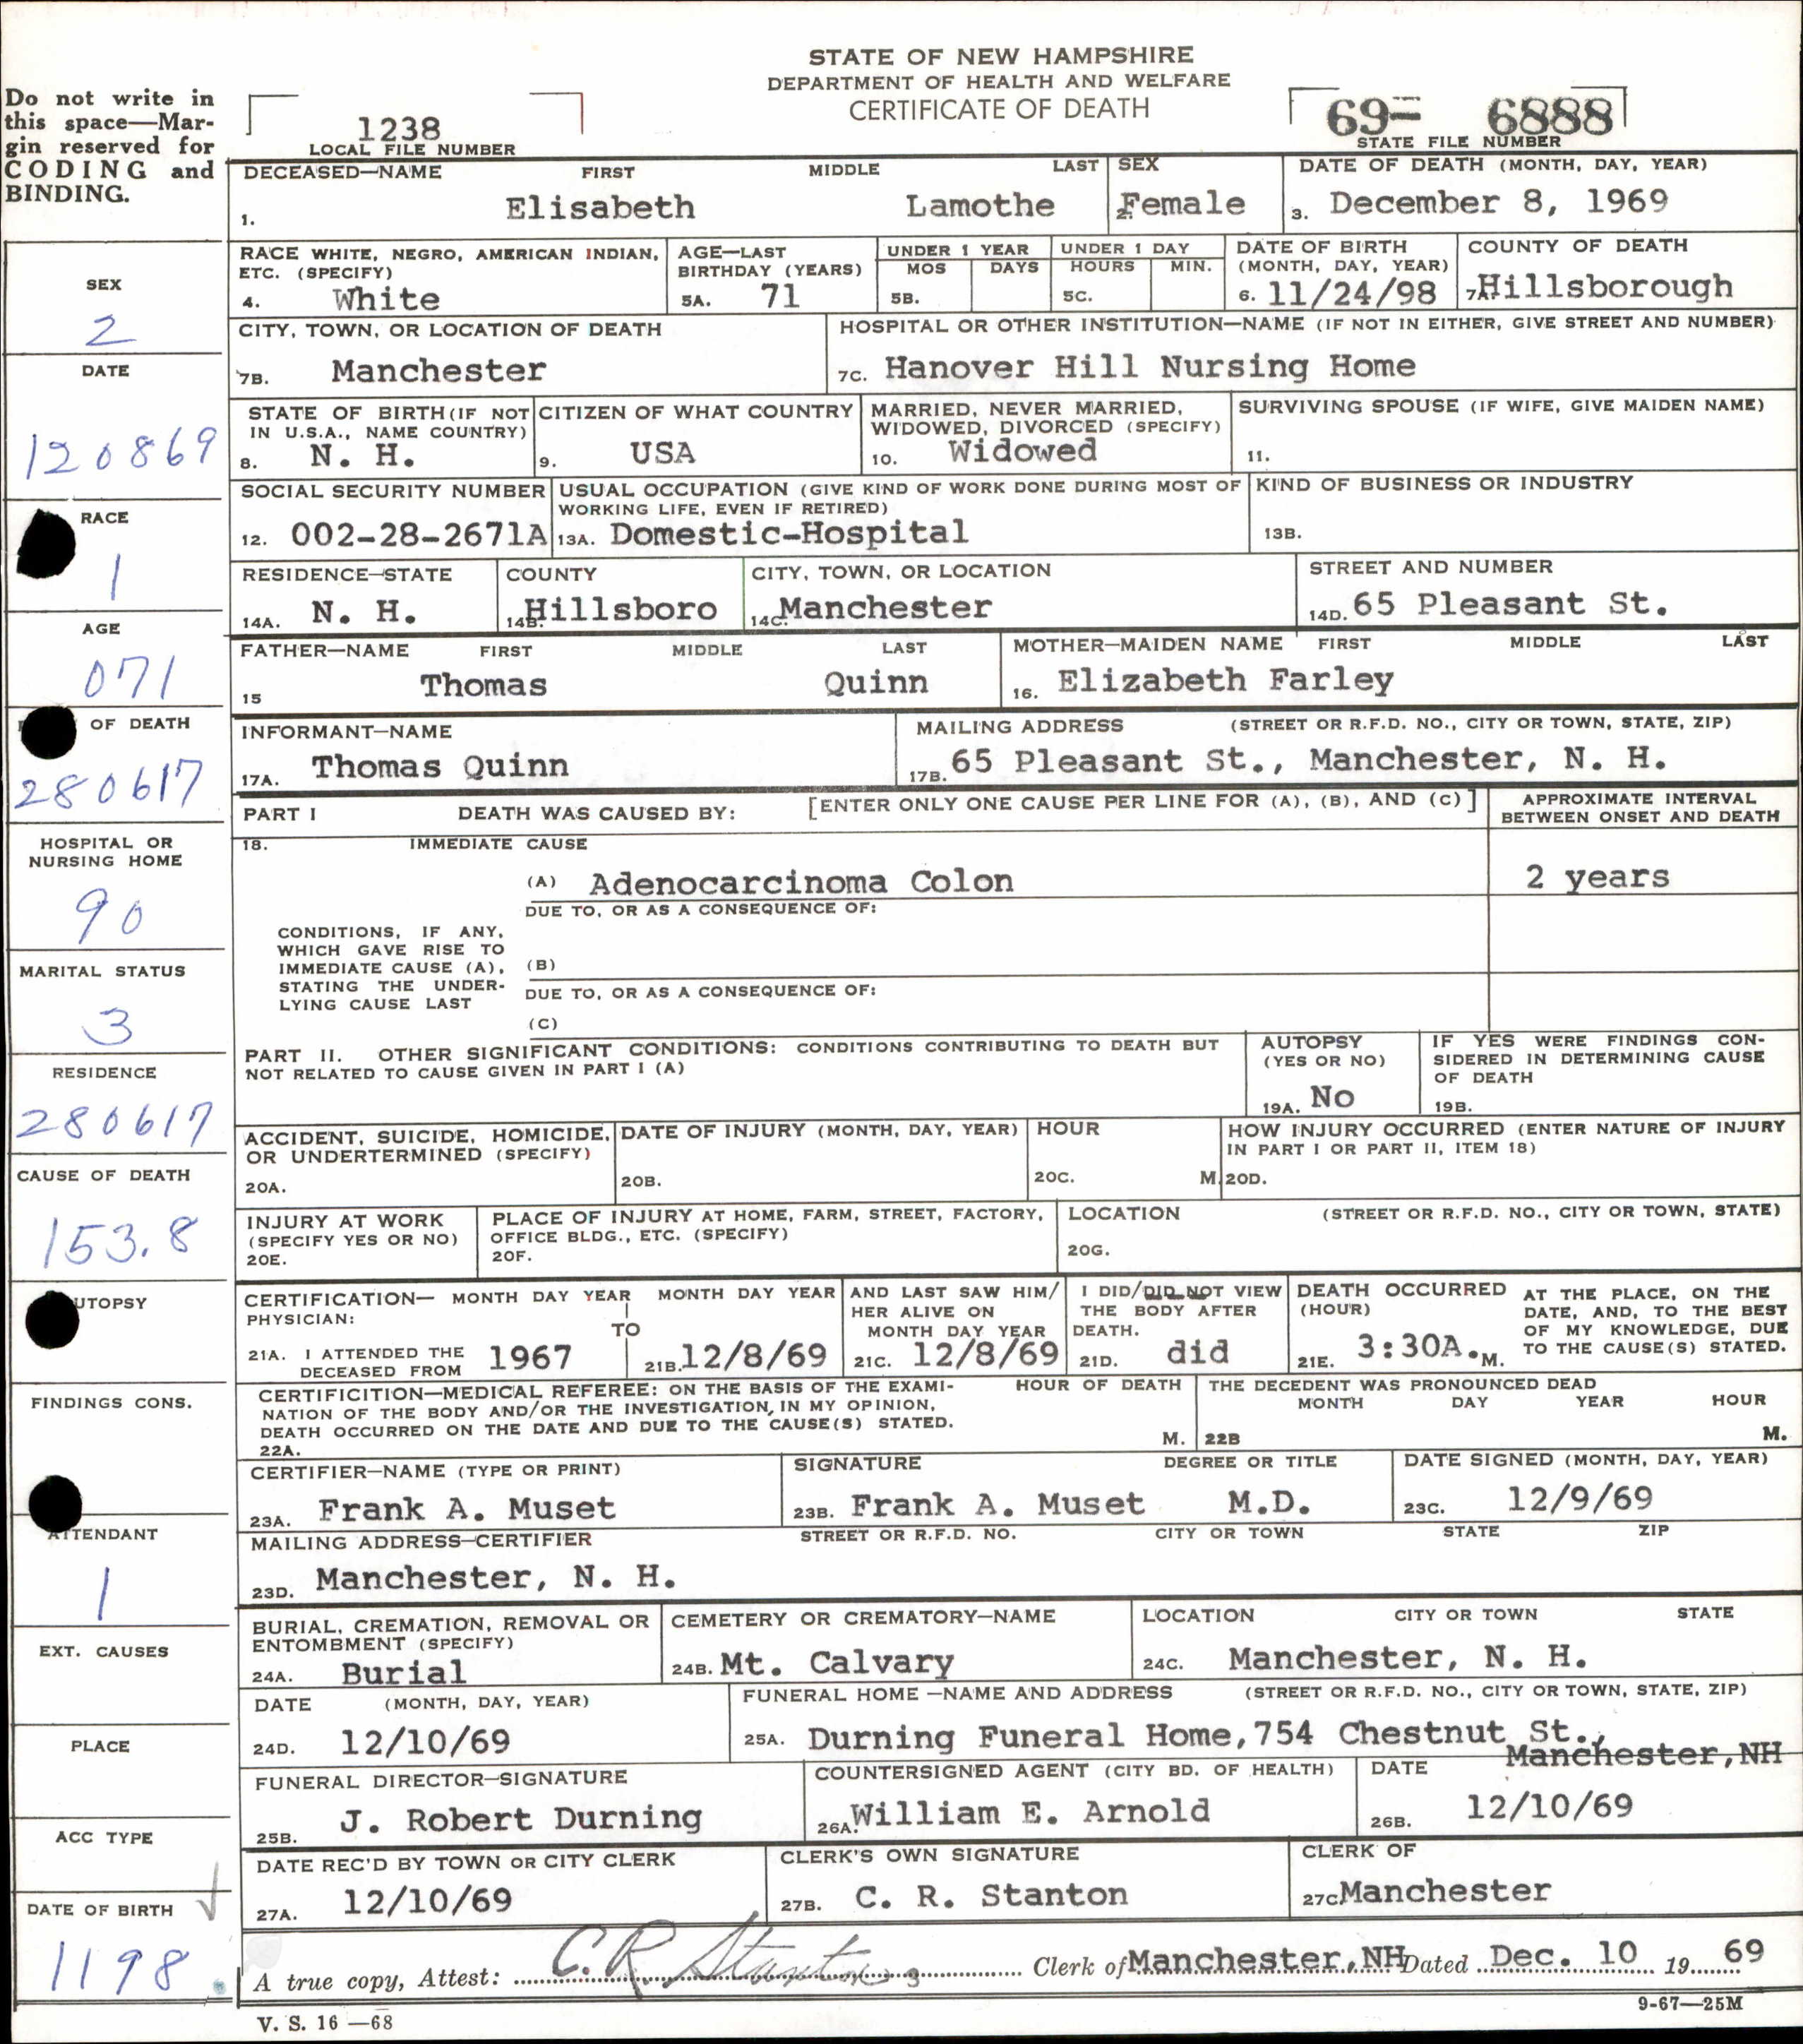 STATE OF NEW HAMPSHIRE
DEPARTMENT OF HEALTH AND WELFARE
CERTIFICATE OF DEATH
Do not write in
this space—Mar-
gin reserved for
CODING and
BINDING.
1238
LOCAL FILE NUMBER
69- 6888
STATE FILE NUMBER
DECEASED—NAME FIRST MIDDLE LAST
1. Elisabeth Lamothe
SEX
2. Female
DATE OF DEATH (MONTH, DAY, YEAR)
3. December 8, 1969
RACE WHITE, NEGRO, AMERICAN INDIAN,
ETC. (SPECIFY)
4. White
AGE—LAST
BIRTHDAY (YEARS)
5A. 71
UNDER 1 YEAR
MOS DAYS
5B.
UNDER 1 DAY
HOURS MIN.
5C.
DATE OF BIRTH
(MONTH, DAY, YEAR)
6. 11/24/98
COUNTY OF DEATH
7A. Hillsborough
CITY, TOWN, OR LOCATION OF DEATH
7B. Manchester
HOSPITAL OR OTHER INSTITUTION—NAME (IF NOT IN EITHER, GIVE STREET AND NUMBER)
7C. Hanover Hill Nursing Home
STATE OF BIRTH (IF NOT
IN U.S.A., NAME COUNTRY)
8. N. H.
CITIZEN OF WHAT COUNTRY
9. USA
MARRIED, NEVER MARRIED,
WIDOWED, DIVORCED (SPECIFY)
10. Widowed
SURVIVING SPOUSE (IF WIFE, GIVE MAIDEN NAME)
11.
SOCIAL SECURITY NUMBER
12. 002-28-2671A
USUAL OCCUPATION (GIVE KIND OF WORK DONE DURING MOST OF
WORKING LIFE, EVEN IF RETIRED)
13A. Domestic-Hospital
KIND OF BUSINESS OR INDUSTRY
13B.
RESIDENCE—STATE
14A. N. H.
COUNTY
14B. Hillsboro
CITY, TOWN, OR LOCATION
14C. Manchester
STREET AND NUMBER
14D. 65 Pleasant St.
FATHER—NAME FIRST MIDDLE LAST
15 Thomas Quinn
MOTHER—MAIDEN NAME FIRST MIDDLE LAST
16. Elizabeth Farley
INFORMANT—NAME
17A. Thomas Quinn
MAILING ADDRESS (STREET OR R.F.D. NO., CITY OR TOWN, STATE, ZIP)
17B. 65 Pleasant St., Manchester, N. H.
PART I DEATH WAS CAUSED BY: [ENTER ONLY ONE CAUSE PER LINE FOR (A), (B), AND (C)]
APPROXIMATE INTERVAL
BETWEEN ONSET AND DEATH
18. IMMEDIATE CAUSE
(A) Adenocarcinoma Colon
2 years
DUE TO, OR AS A CONSEQUENCE OF:
CONDITIONS, IF ANY,
WHICH GAVE RISE TO
IMMEDIATE CAUSE (A),
STATING THE UNDER-
LYING CAUSE LAST
(B)
DUE TO, OR AS A CONSEQUENCE OF:
(C)
PART II. OTHER SIGNIFICANT CONDITIONS: CONDITIONS CONTRIBUTING TO DEATH BUT
NOT RELATED TO CAUSE GIVEN IN PART I (A)
AUTOPSY
(YES OR NO)
19A. No
IF YES WERE FINDINGS CON-
SIDERED IN DETERMINING CAUSE
OF DEATH
19B.
ACCIDENT, SUICIDE, HOMICIDE,
OR UNDERTERMINED (SPECIFY)
20A.
DATE OF INJURY (MONTH, DAY, YEAR)
20B.
HOUR
20C. M.
HOW INJURY OCCURRED (ENTER NATURE OF INJURY
IN PART I OR PART II, ITEM 18)
20D.
INJURY AT WORK
(SPECIFY YES OR NO)
20E.
PLACE OF INJURY AT HOME, FARM, STREET, FACTORY,
OFFICE BLDG., ETC. (SPECIFY)
20F.
LOCATION (STREET OR R.F.D. NO., CITY OR TOWN, STATE)
20G.
CERTIFICATION— MONTH DAY YEAR
PHYSICIAN:
21A. I ATTENDED THE
DECEASED FROM 1967
TO
MONTH DAY YEAR
21B. 12/8/69
AND LAST SAW HIM/
HER ALIVE ON
MONTH DAY YEAR
21C. 12/8/69
I DID/DID NOT VIEW
THE BODY AFTER
DEATH.
21D. did
DEATH OCCURRED
(HOUR)
21E. 3:30A. M.
AT THE PLACE, ON THE
DATE, AND, TO THE BEST
OF MY KNOWLEDGE, DUE
TO THE CAUSE(S) STATED.
CERTIFICITION—MEDICAL REFEREE: ON THE BASIS OF THE EXAMI-
NATION OF THE BODY AND/OR THE INVESTIGATION, IN MY OPINION,
DEATH OCCURRED ON THE DATE AND DUE TO THE CAUSE(S) STATED.
22A.
HOUR OF DEATH
M.
THE DECEDENT WAS PRONOUNCED DEAD
MONTH DAY YEAR HOUR
22B M.
CERTIFIER—NAME (TYPE OR PRINT)
23A. Frank A. Muset
SIGNATURE DEGREE OR TITLE
23B. Frank A. Muset M.D.
DATE SIGNED (MONTH, DAY, YEAR)
23C. 12/9/69
MAILING ADDRESS—CERTIFIER STREET OR R.F.D. NO. CITY OR TOWN STATE ZIP
23D. Manchester, N. H.
BURIAL, CREMATION, REMOVAL OR
ENTOMBMENT (SPECIFY)
24A. Burial
CEMETERY OR CREMATORY—NAME
24B. Mt. Calvary
LOCATION CITY OR TOWN STATE
24C. Manchester, N. H.
DATE (MONTH, DAY, YEAR)
24D. 12/10/69
FUNERAL HOME —NAME AND ADDRESS (STREET OR R.F.D. NO., CITY OR TOWN, STATE, ZIP)
25A. Durning Funeral Home,754 Chestnut St.,
Manchester,NH
FUNERAL DIRECTOR—SIGNATURE
25B. J. Robert Durning
COUNTERSIGNED AGENT (CITY BD. OF HEALTH)
26A. William E. Arnold
DATE
26B. 12/10/69
DATE REC'D BY TOWN OR CITY CLERK
27A. 12/10/69
CLERK'S OWN SIGNATURE
27B. C. R. Stanton
CLERK OF
27C. Manchester
A true copy, Attest: C. R. Stanton Clerk of Manchester,NH Dated Dec. 10 19 69
V. S. 16 —68
9-67—25M
SEX
2
DATE
120869
RACE
1
AGE
071
OF DEATH
280617
HOSPITAL OR
NURSING HOME
90
MARITAL STATUS
3
RESIDENCE
280617
CAUSE OF DEATH
153.8
UTOPSY
FINDINGS CONS.
ATTENDANT
1
EXT. CAUSES
PLACE
ACC TYPE
DATE OF BIRTH
1198